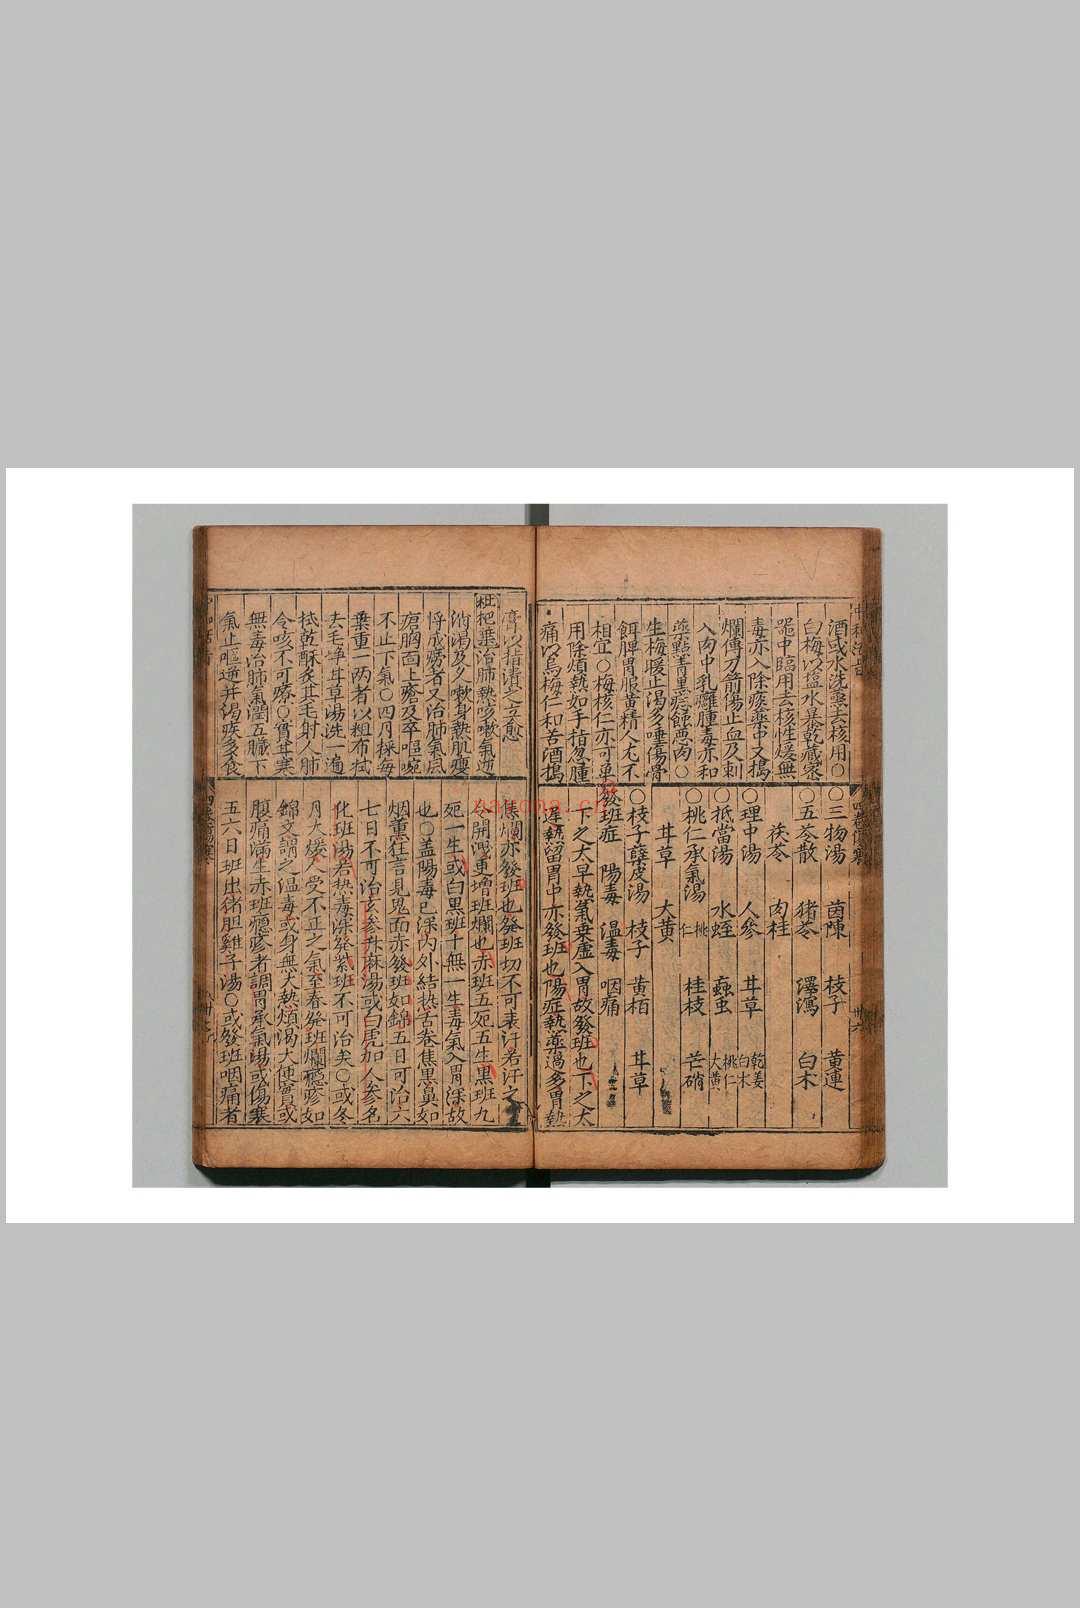 酒或水洗蒸去核用○
白梅以塩水暴乾藏密
噐中臨用去核性煖無
毒亦入除痰藥中又搗
爛傅刀箭傷止血及刺
入肉中乳癰腫毒亦和
藥點青黑痣蝕悪肉○
生梅煖止渴多唾傷骨
餌脾胃服黄精人尤不
相宜○梅核仁亦可单
用除煩熱如手指忽腫
痛以烏梅仁和苦酒搗
○三物湯 茵陳 枝子 黄連
○五苓散 猪苓 澤瀉 白术
茯苓 肉桂
○理中湯 人參 甘草 乾姜 白术
○抵當湯 水蛭 蝱虫 桃仁 大黄
○桃仁承氣湯 桃仁 桂枝 芒硝
甘草 大黄
○枝子蘖皮湯 枝子 黄栢 甘草
發班症 陽毒 温毒 咽痛
下之太早熱氣乗虚入胃故發班也下之太
遲熱留胃中亦發班也陽症熱藥過多胃熱
膏以指漬之立愈
枇杷葉治肺熱咳嗽氣逆
消渴及久嗽身熱肌瘦
将成癆者又治肺氣風
瘡胸面上瘡及卒嘔啘
不止下氣○四月採每
葉重一両者以粗布拭
去毛浄甘草湯洗一遍
拭乾酥炙其毛射人肺
令咳不可療○實甘寒
無毒治肺氣潤五臓下
氣止嘔逆并渴疾多食
焦爛亦發班也發班切不可表汗若汗之
令開泄更增班爛也赤班五死五生黒班九
死一生或白黒班十無一生毒氣入胃深故
也○盖陽毒已深内外結热舌卷焦黒鼻如
烟薫狂言見鬼面赤發班如錦五日可治六
七日不可治玄參升麻湯或白虎加人參名
化班湯若热毒深發紫班不可治矣○或冬
月大煖受不正之氣至春發班爛癮疹如
錦文謂之温毒或身無大熱煩渴大便實或
腹痛满生赤班癮疹者調胃承氣湯或傷寒
五六日班出猪胆雞子湯○或發班咽痛者
四卷傷寒
卅六
nayona.cn